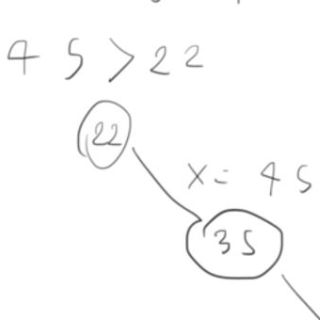 45 > 22
22
x = 45
35